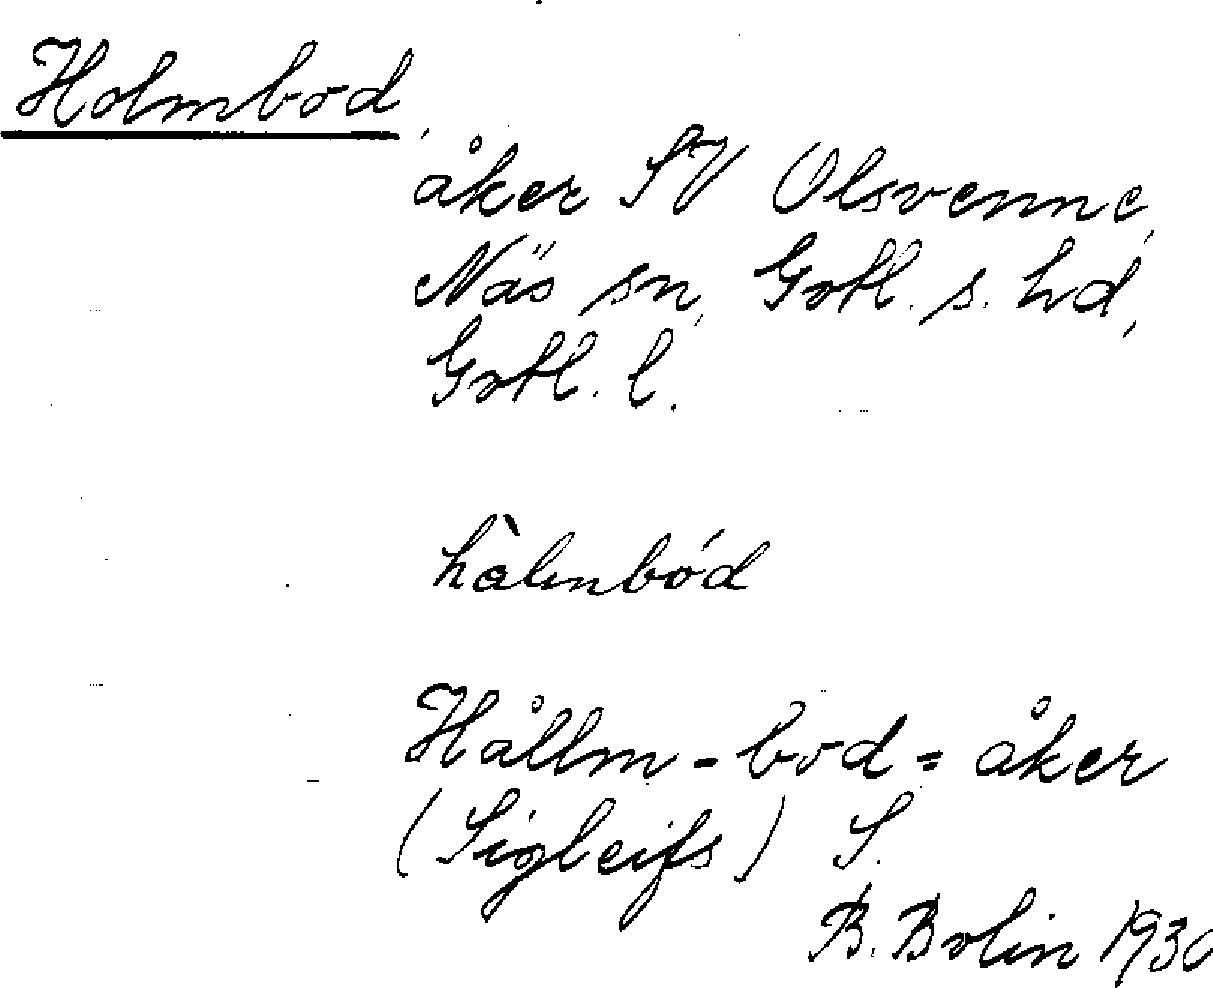 Holmbod,
åker SV Olsvenne,
Näs sn, Gotl. s. hd,
Gotl. l.
hàlmbód
Hållm-bod = åker
(Sigleifs) S.
B. Bolin 1930